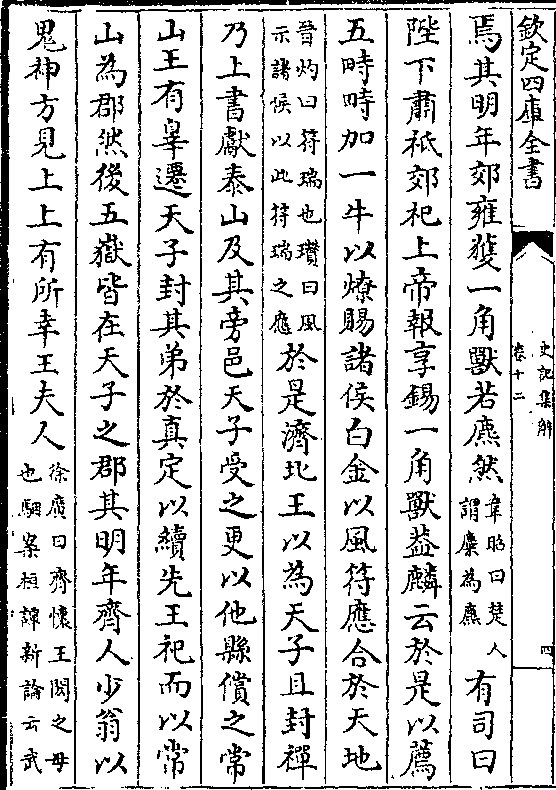 欽定四庫全書
史記集解
卷十二
四
焉其明年郊雍獲一角獸若麃然韋昭曰楚人謂麋為麃有司曰
陛下肅祗郊祀上帝報享錫一角獸葢麟云於是以薦
五畤畤加一牛以燎賜諸侯白金以風符應合於天地
晉灼曰符瑞也瓚曰風示諸侯以此符瑞之應於是濟北王以為天子且封禪
乃上書獻泰山及其旁邑天子受之更以他縣償之常
山王有辠遷天子封其弟於真定以續先王祀而以常
山為郡然後五嶽皆在天子之郡其明年齊人少翁以
鬼神方見上上有所幸王夫人徐廣曰齊懷王閎之母也駰案桓譚新論云武